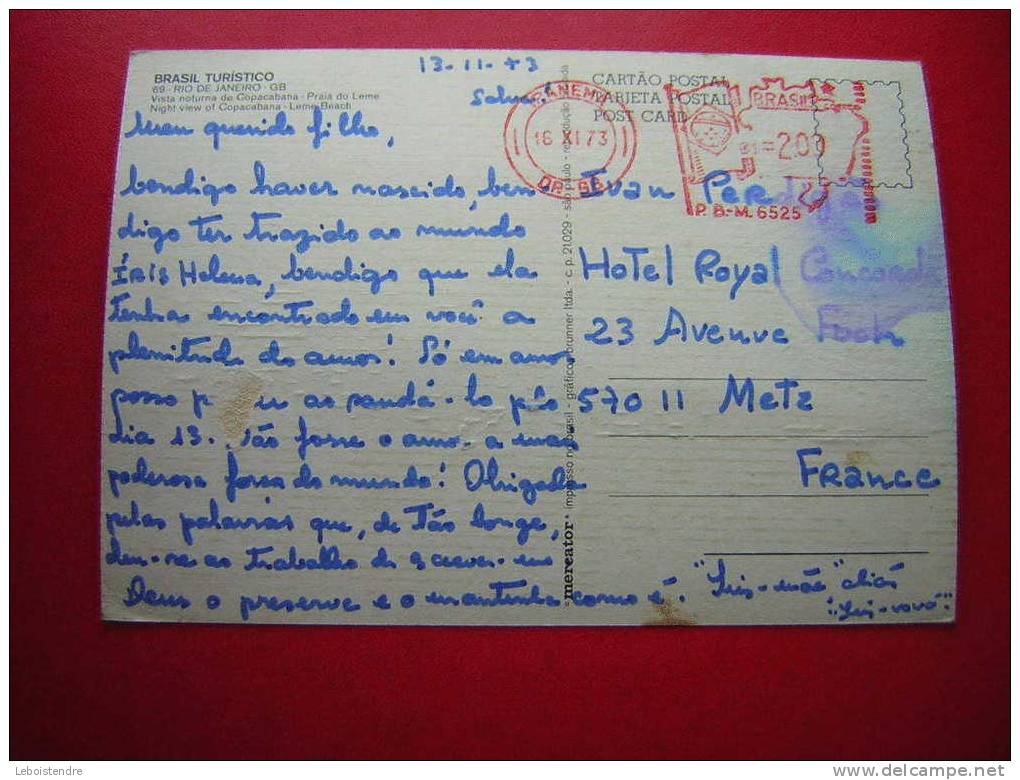 BRASIL TURÍSTICO
69 - RIO DE JANEIRO - GB
Vista noturna de Copacabana - Praia do Leme
Night view of Copacabana - Leme Beach
13-11-73
Salve!
Meu querido filho,
bendigo haver nascido, ben-
digo ter trazido ao mundo
Íris Helena, bendigo que ela
tenha encontrado em você a
plenitude do amor! Só em amor
posso ao saudá-lo pelo
dia 13. Não fosse o amor a mais
poderosa força do mundo! Obrigada
pelas palavras que, de tão longe,
deu-se ao trabalho de escrever-me
Deus o preserve e o mantenha como é. "Iris-mãe" aliás
"Iris-vovó".
mercator impresso no brasil - gráficos brunner ltda. - c. p. 21.029 - são paulo - reprodução
CARTÃO POSTAL
TARJETA POSTAL
POST CARD
IPANEMA
16 XI 73
DR-GB
BRASIL
=2.00
P. B.-M. 6525
Ivan
Hotel Royal Concorde
23 Avenue Foch
57011 Metz
France
Leboistendre
delcampe.net